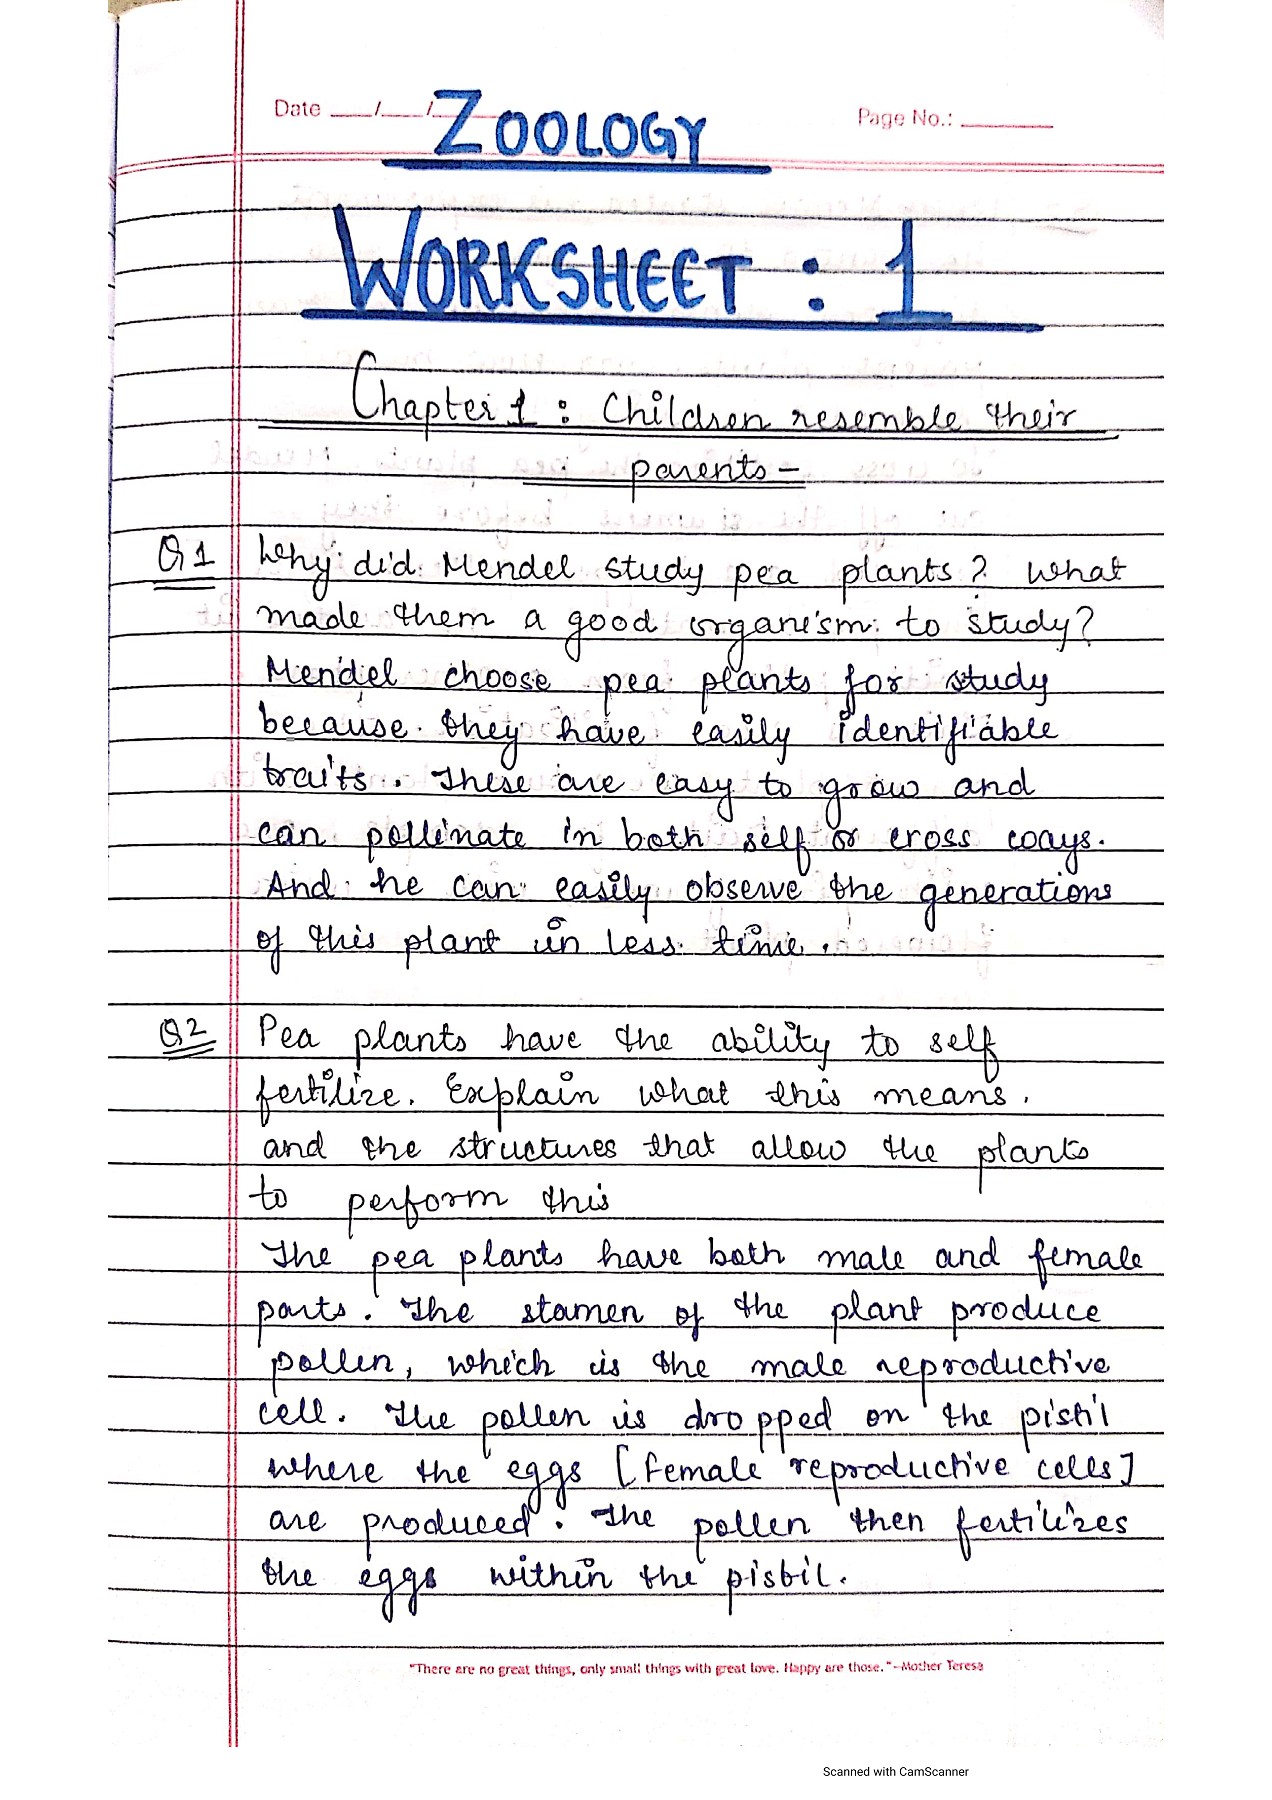 Date ___/___/___
Page No.: ______
ZOOLOGY
WORKSHEET : 1
Chapter 1 : Children resemble their
parents -
Q1 Why did Mendel study pea plants? What
made them a good organism to study?
Mendel choose pea plants for study
because they have easily identifiable
traits. These are easy to grow and
can pollinate in both self or cross ways.
And he can easily observe the generations
of this plant in less time.
Q2 Pea plants have the ability to self
fertilize. Explain what this means.
and the structures that allow the plants
to perform this
The pea plants have both male and female
parts. The stamen of the plant produce
pollen, which is the male reproductive
cell. The pollen is dropped on the pistil
where the eggs [female reproductive cells]
are produced. The pollen then fertilizes
the eggs within the pistil.
"There are no great things, only small things with great love. Happy are those."-Mother Teresa
Scanned with CamScanner